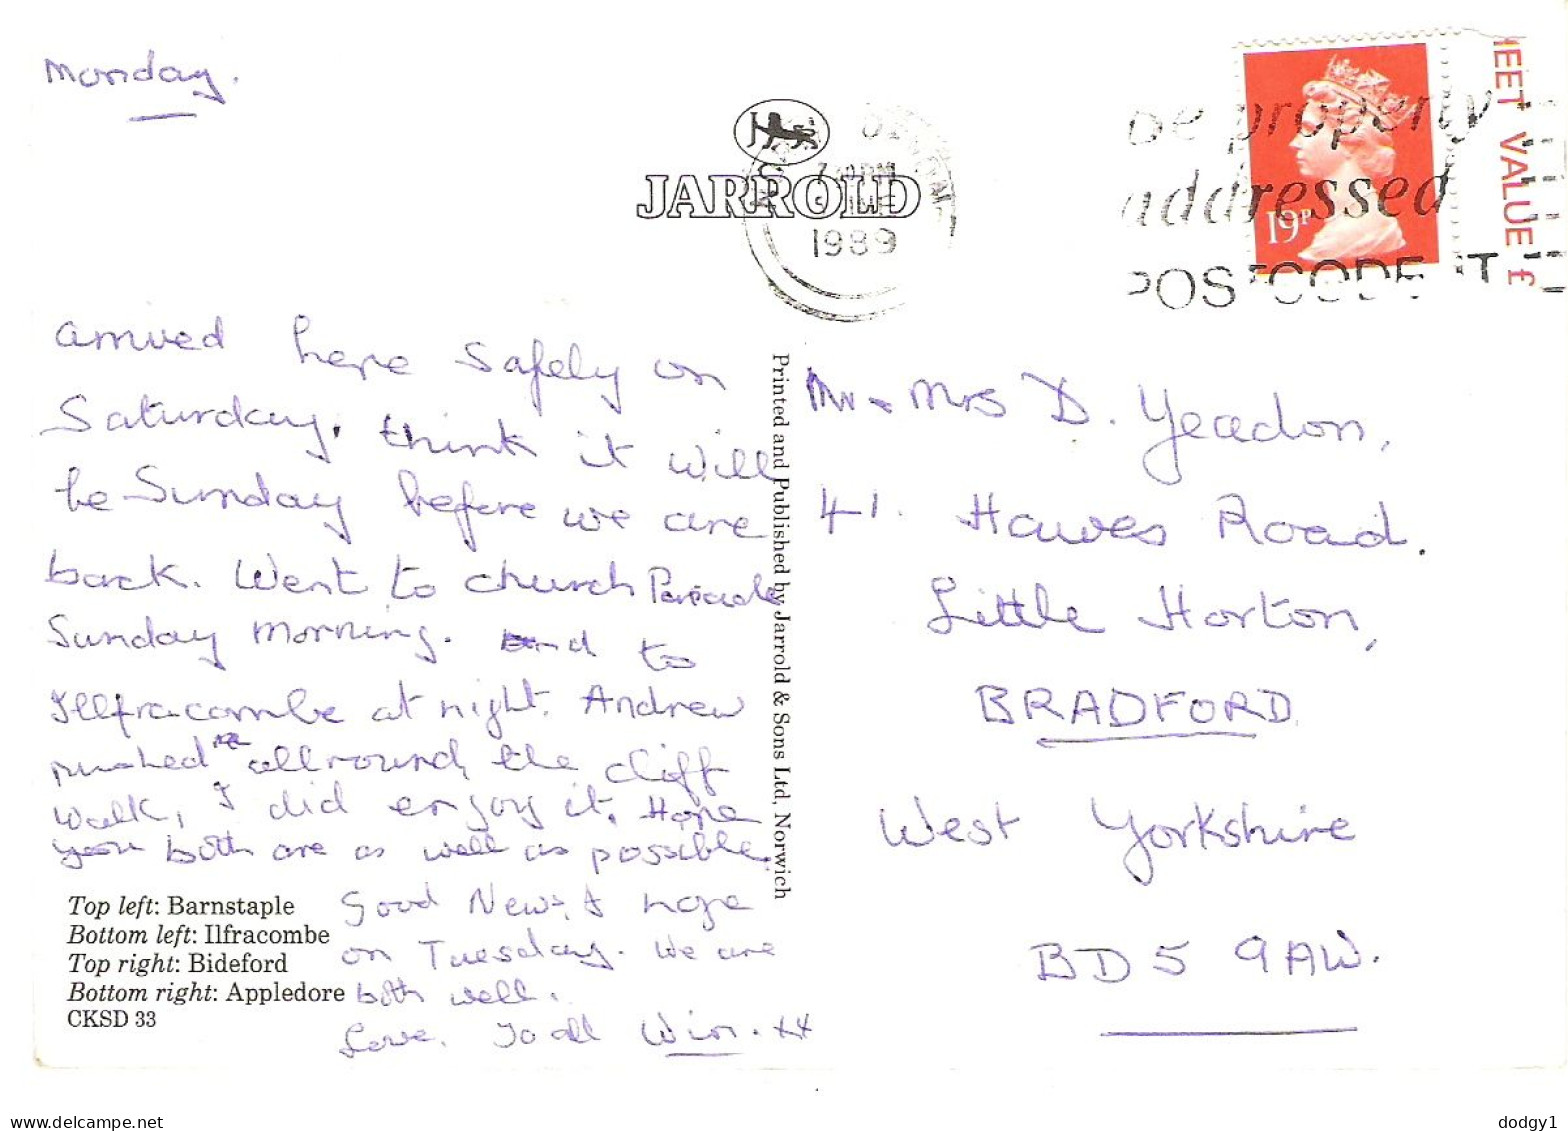 Monday.
JARROLD
1989
be properly
addressed
POSTCODE IT
19P
HEET VALUE £
arrived here safely on
Saturday, think it will
be Sunday before we are
back. Went to church Parade
Sunday morning. and to
Illfracombe at night. Andrew
pushed me all round the cliff
walk, I did enjoy it. Hope
you both are as well as possible.
Good News, & hope
on Tuesday. We are
both well.
Love, To all Win. xx
Top left: Barnstaple
Bottom left: Ilfracombe
Top right: Bideford
Bottom right: Appledore
CKSD 33
Printed and Published by Jarrold & Sons Ltd, Norwich
Mr & Mrs D. Yeadon,
41. Hawes Road.
Little Horton,
BRADFORD
West Yorkshire
BD5 9AW.
delcampe.net
dodgy1